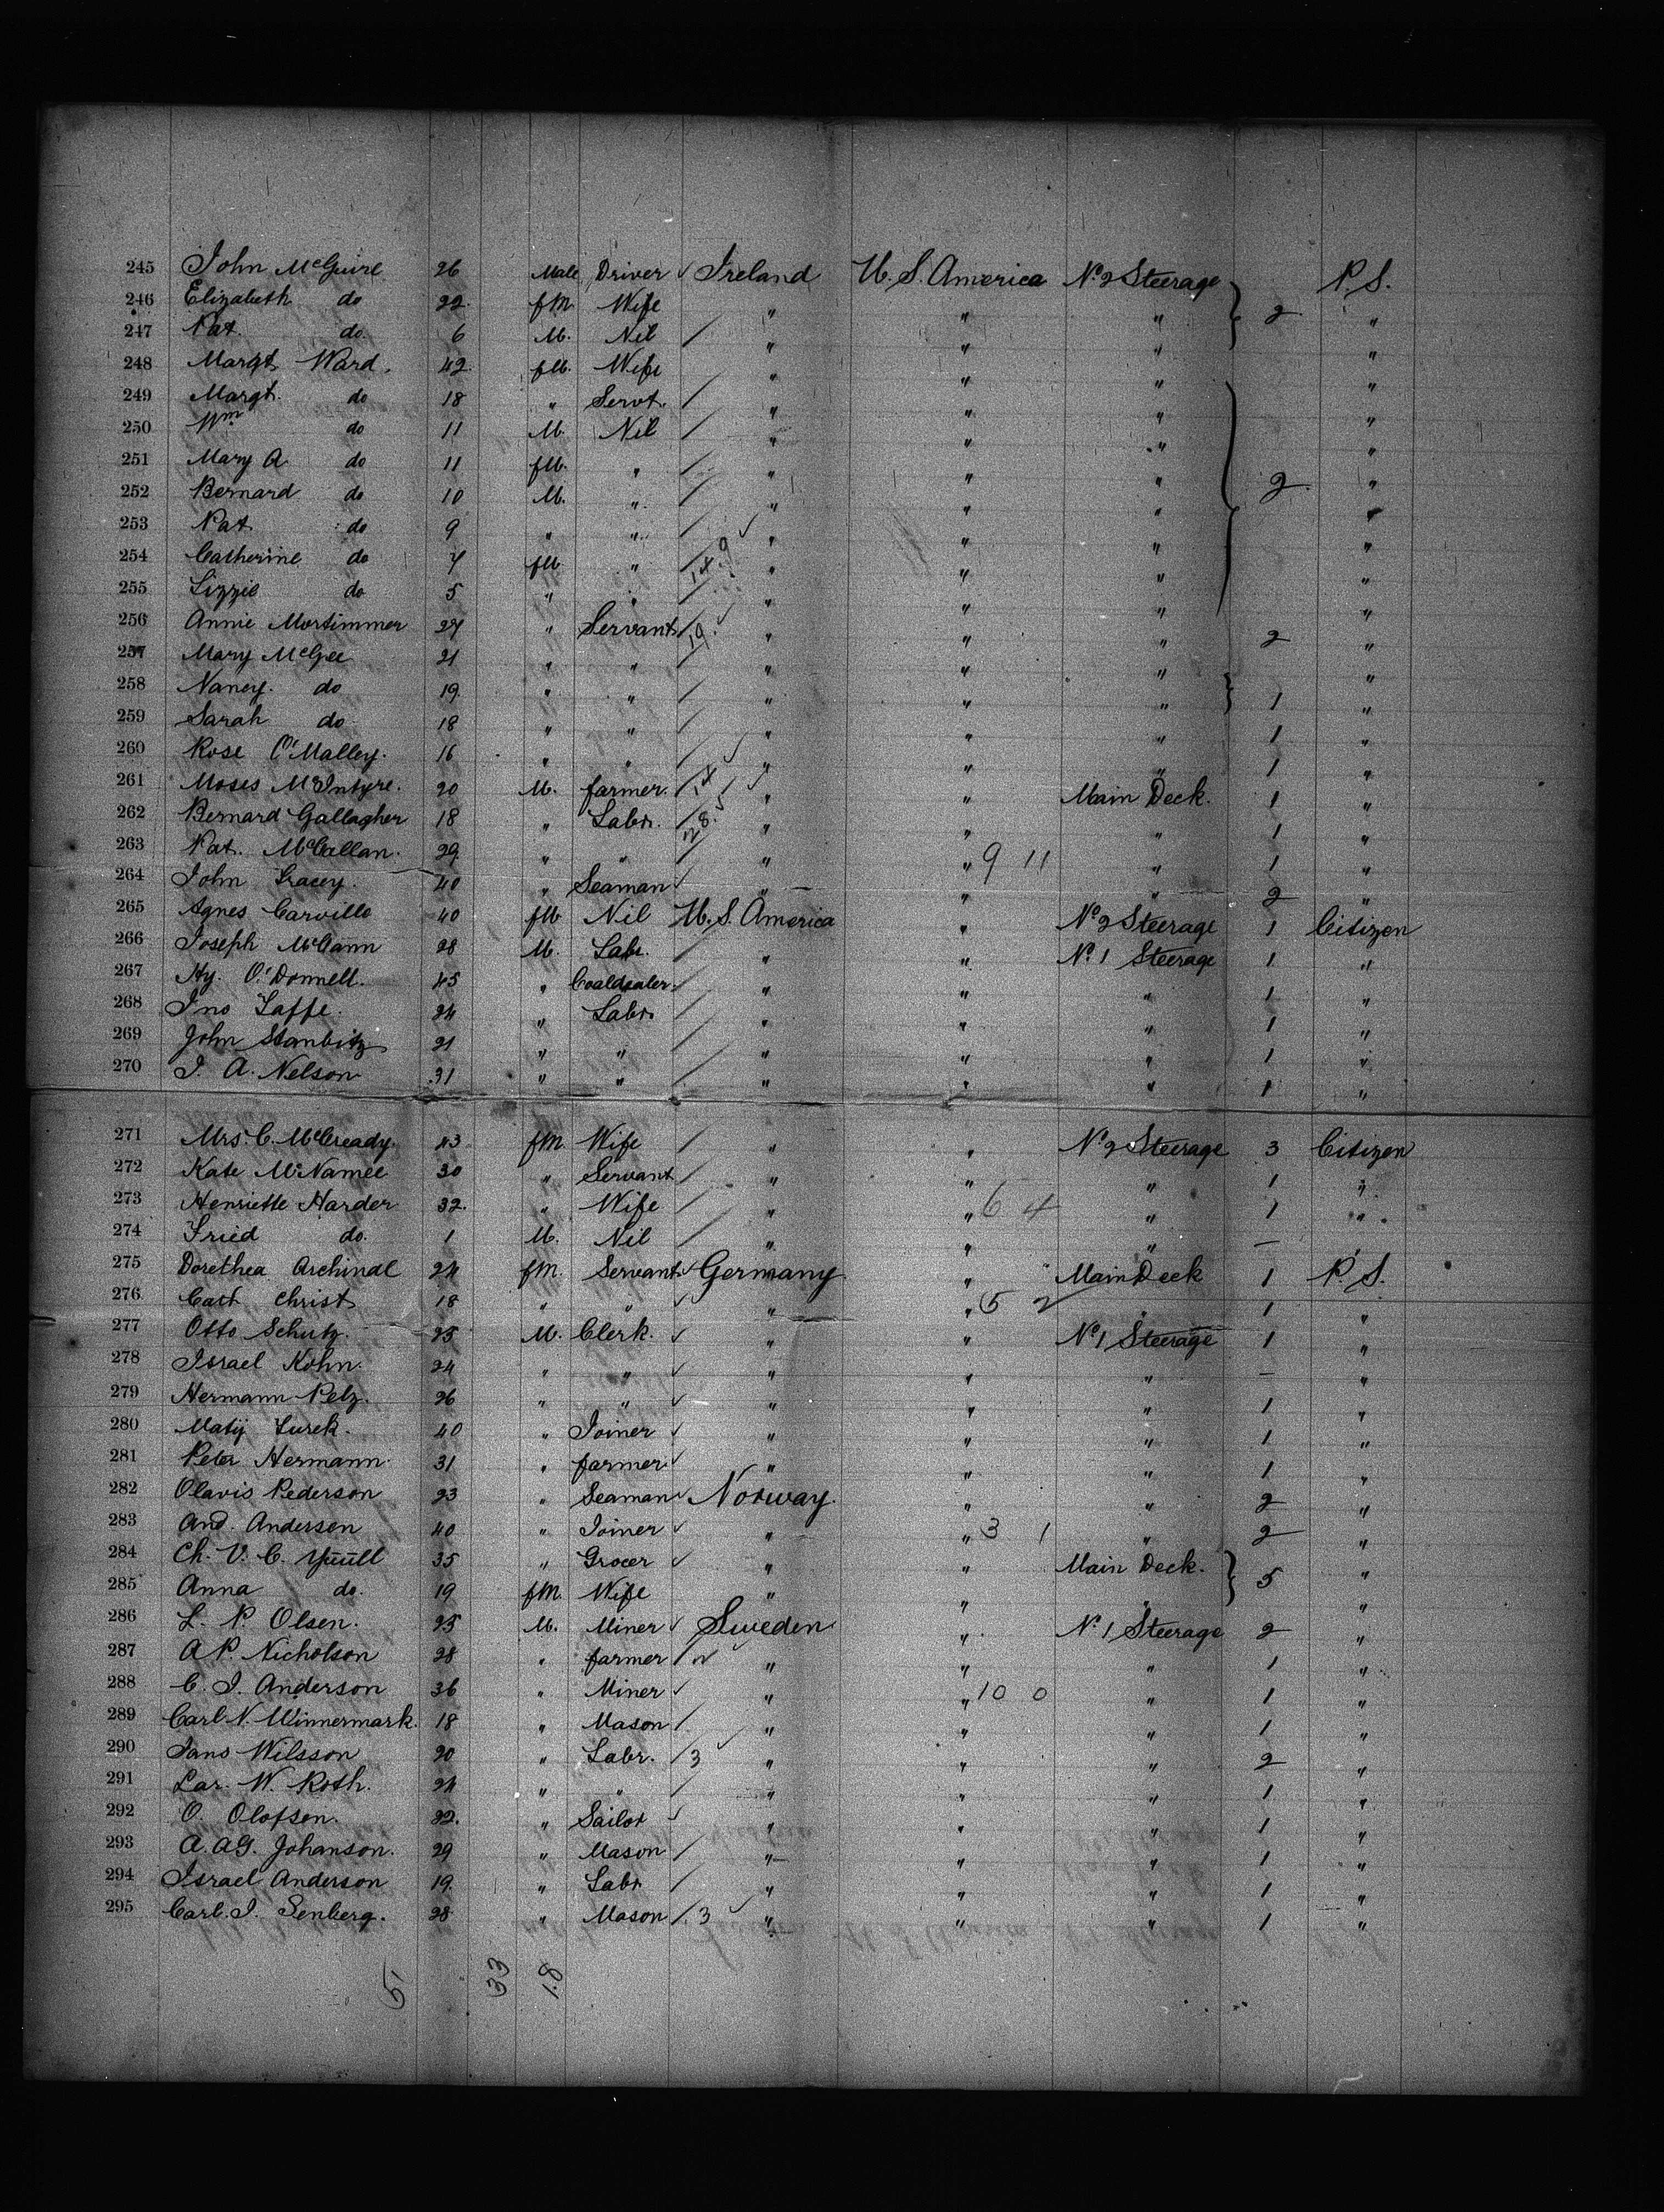 245 John McGuire 26 Male Driver Ireland U.S. America No 2 Steerage P.S.
246 Elizabeth do 22 fM. Wife " " " 2 "
247 Pat. do. 6 M. Nil " " " "
248 Margt Ward. 42 fM. Wife " " " "
249 Margt. do 18 " Servt. " " " "
250 Wm do 11 M. Nil " " " "
251 Mary A. do 11 fM. " " " " "
252 Bernard do 10 M. " " " " 2 "
253 Pat do 9 " " " " " "
254 Catherine do 7 fM " " " " "
255 Lizzie do 5 " " " " " "
256 Annie Mortimmer 27 " Servant " " " 2 "
257 Mary McGee 21 " " " " " "
258 Nancy. do 19. " " " " " 1 "
259 Sarah do 18 " " " " " 1 "
260 Rose O'Malley. 16 " " " " " 1 "
261 Moses McIntyre. 20 M. farmer. " " Main Deck. 1 "
262 Bernard Gallagher 18 " Labr. " " " 1 "
263 Pat. McCallan. 29. " " " " 9 11 " 1 "
264 John Gracey. 40 " Seaman " " " 2 "
265 Agnes Carville 40 fM Nil U.S. America " No 2 Steerage 1 Citizen
266 Joseph McCann 28 M. Labr. " " No 1 Steerage 1 "
267 Hy. O'Donnell. 45 " Coaldealer " " " 1 "
268 Jno Jaffe. 24 " Labr. " " " 1 "
269 John Stanbitz 21 " " " " " 1 "
270 J. A. Nelson 31 " " " " " 1 "
271 Mrs. C. McCready. 43 fM Wife " " No 2 Steerage 3 Citizen
272 Kate McNamee 30 " Servant " " " 1 "
273 Henriette Harder 32. " Wife " " 6 4 " 1 "
274 Fried do. 1 M. Nil " " " — "
275 Dorethea Archindl 24 fM. Servant Germany " Main Deck 1 P.S.
276 Cath Christ 18 " " " " 5 2 " 1 "
277 Otto Schutz. 25 M. Clerk. " " No 1 Steerage 1 "
278 Israel Kohn. 24 " " " " " — "
279 Hermann Pelz. 26 " " " " " 1 "
280 Matij Turek. 40 " Joiner " " " 1 "
281 Peter Hermann. 31 " farmer " " " 1 "
282 Olavis Pederson 23 " Seaman Norway. " " 2 "
283 And. Andersen 40 " Joiner " " 3 1 " 2 "
284 Ch. V. C. Yüüll 35 " Grocer " " Main Deck. "
285 Anna do. 19 fM. Wife " " " 5 "
286 L. P. Olsen. 25 M. Miner Sweden " No 1 Steerage 2 "
287 A P. Nicholson 28 " farmer " " " 1 "
288 C. J. Anderson 36 " Miner " " 10 0 " 1 "
289 Carl N. Winnermark. 18 " Mason " " " 1 "
290 Jans Wilsson 20 " Labr. 3 " " " 2 "
291 Lar. W. Roth. 24 " " " " " 1 "
292 O. Olofsen. 32. " Sailor " " " 1 "
293 A. AG. Johanson. 29 " Mason " " " 1 "
294 Israel Anderson 19. " Labr " " " 1 "
295 Carl. J. Senberg. 28 " Mason 3 " " " 1 "
33 18